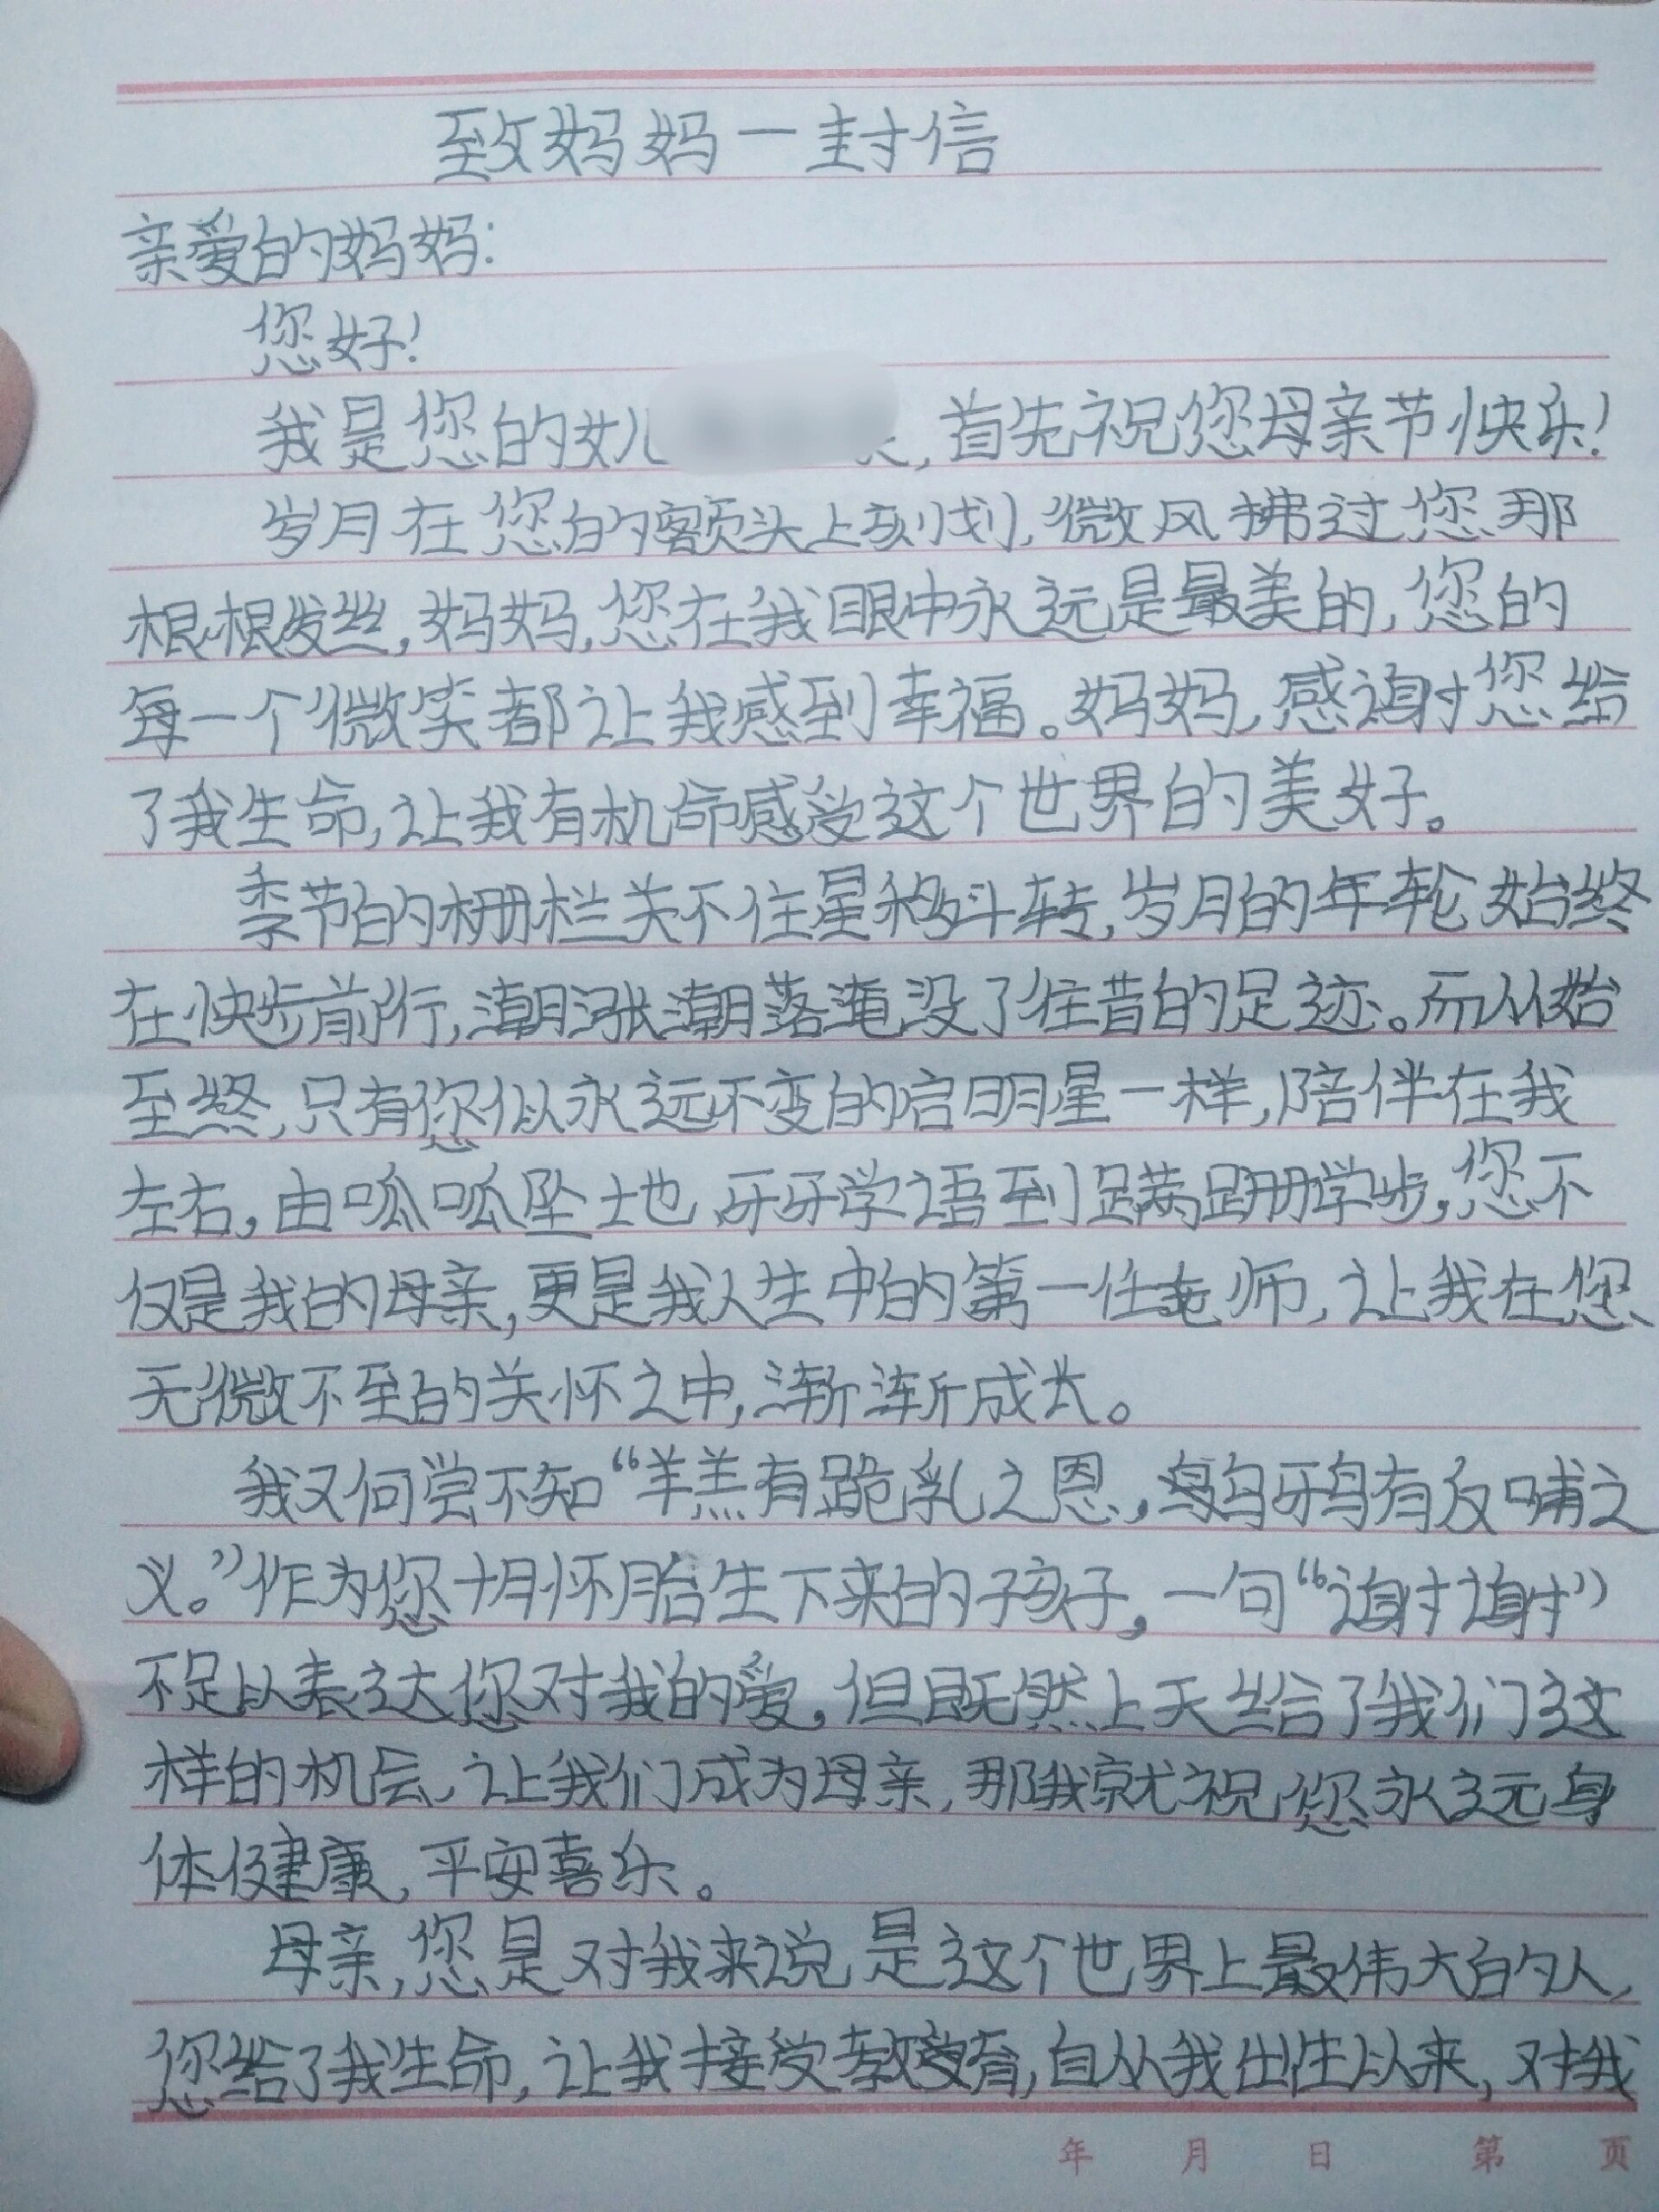 致妈妈一封信
亲爱的妈妈:
您好!
我是您的女儿,首先祝您母亲节快乐!
岁月在您的额头上刻划,微风拂过您那
根根发丝,妈妈,您在我眼中永远是最美的,您的
每一个微笑都让我感到幸福。妈妈,感谢您给
了我生命,让我有机命感受这个世界的美好。
季节的栅栏关不住星移斗转,岁月的年轮始终
在快步前行,潮涨潮落淹没了往昔的足迹。而从始
至终,只有您似永远不变的启明星一样,陪伴在我
左右,由呱呱坠土地、牙牙学语到蹒跚学步,您不
仅是我的母亲,更是我人生中的第一任老师,让我在您
无微不至的关怀之中,渐渐成长。
我又何尝不知“羊羔有跪乳之恩,乌鸦有反哺之
义。”作为您十月怀胎生下来的孩子,一句“谢谢”
不足以表达您对我的爱,但既然上天给了我们这
样的机会,让我们成为母亲,那我就祝您永远身
体健康,平安喜乐。
母亲,您是对我来说是这个世界上最伟大的人,
您给了我生命,让我接受教育,自从我出生以来,对我
年 月 日 第 页